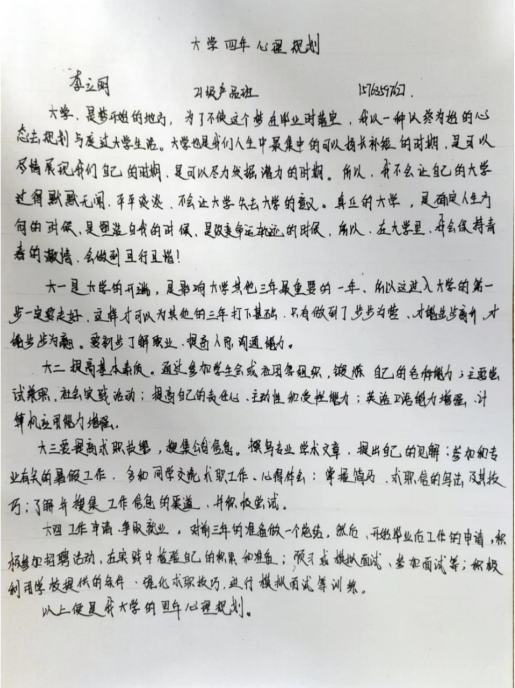 大学四年心理规划
李立国 21级产品班 1576359762
大学,是梦开始的地方,为了不使这个梦在毕业时落空,我以一种以终为始的心
态去规划与度过大学生活。大学也是我们人生中最集中的可以扬长补短的时期,是可以
尽情展现我们自己的时期,是可以尽力发掘潜力的时期。所以,我不会让自己的大学
过得默默无闻,平平淡淡,不会让大学失去大学的意义。真正的大学,是确定人生方
向的时候,是塑造自我的时候,是改变命运轨迹的时候,所以,在大学里,我会保持青
春的激情,会做到且行且惜!
大一是大学的开端,是影响大学其他三年最重要的一年,所以这进入大学的第一
步一定要走好,这样才可以为其他的三年打下基础,只有做到了步步为营,才能步步高升,才
能步步为赢。要初步了解职业,提高人际沟通能力。
大二提高基本素质。通过参加学生会或社团等组织,锻炼自己的各种能力;主要尝
试兼职,社会实践活动;提高自己的责任心、主动性和受挫能力;英语口语能力增强,计
算机应用能力增强。
大三要提高求职技能,搜集公司信息。撰写专业学术文章,提出自己的见解;参加和专
业有关的暑假工作,多和同学交流求职工作、心得体会;掌握简历、求职信的写法及其技
巧;了解并搜集工作信息的渠道,并积极尝试。
大四工作申请,争取就业。对前三年的准备做一个总结,然后,开始毕业后工作的申请,积
极参加招聘活动,在实践中检验自己的积累和准备;预习或模拟面试、参加面试等;积极
利用学校提供的条件,强化求职技巧,进行模拟面试等训练。
以上便是我大学的四年心理规划。